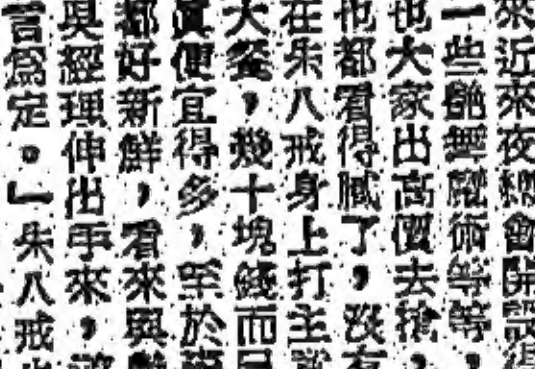 來近來夜總會開設得
一些艷舞魔術等等，
也大家出高價去搶，
也都看得膩了，沒有
在朱八戒身上打主
大餐，幾十塊錢而
眞便宜得多，至於
都好新鮮，看來與
吳經理伸出手來，
言爲定。』朱八戒